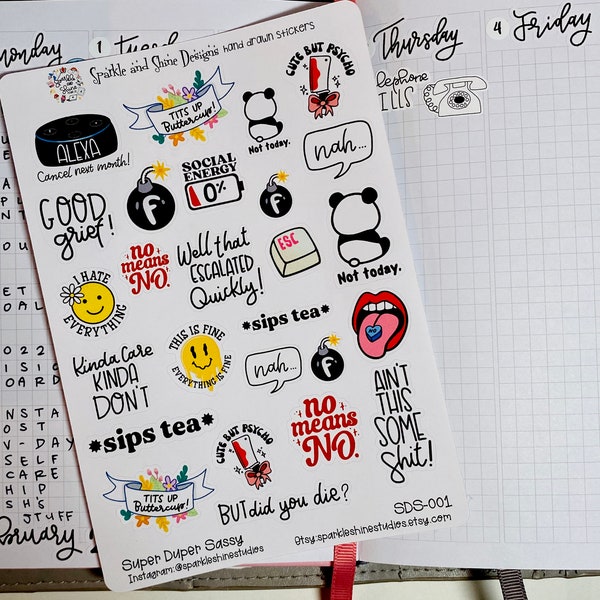 Monday
1 Tuesday
Thursday
4 Friday
elephone
ILLS
Sparkle and Shine Designs hand drawn stickers
ALEXA
Cancel next month!
TITS UP
Buttercup!
Not today.
CUTE BUT PSYCHO
GOOD
grief!
F
SOCIAL
ENERGY
0%
F
nah...
I HATE
EVERYTHING
no
means
NO.
Well that
ESCALATED
Quickly!
ESC
Not today.
Kinda Care
KINDA
DON'T
THIS IS FINE
EVERYTHING IS FINE
*sips tea*
nah...
F
NO
*sips tea*
CUTE BUT PSYCHO
no
means
NO.
AIN'T
THIS
SOME
Shit!
TITS UP
Buttercup!
BUT did you die?
SDS-001
Super Duper Sassy
Instagram:@sparkleshinestudios
Etsy:sparkleshinestudios.etsy.com
OU
ET
OAL
022
ISIO
OARD
NSTA
OST
V-DAY
SELF
CARE
HIP
SH'S
STUFF
bruary